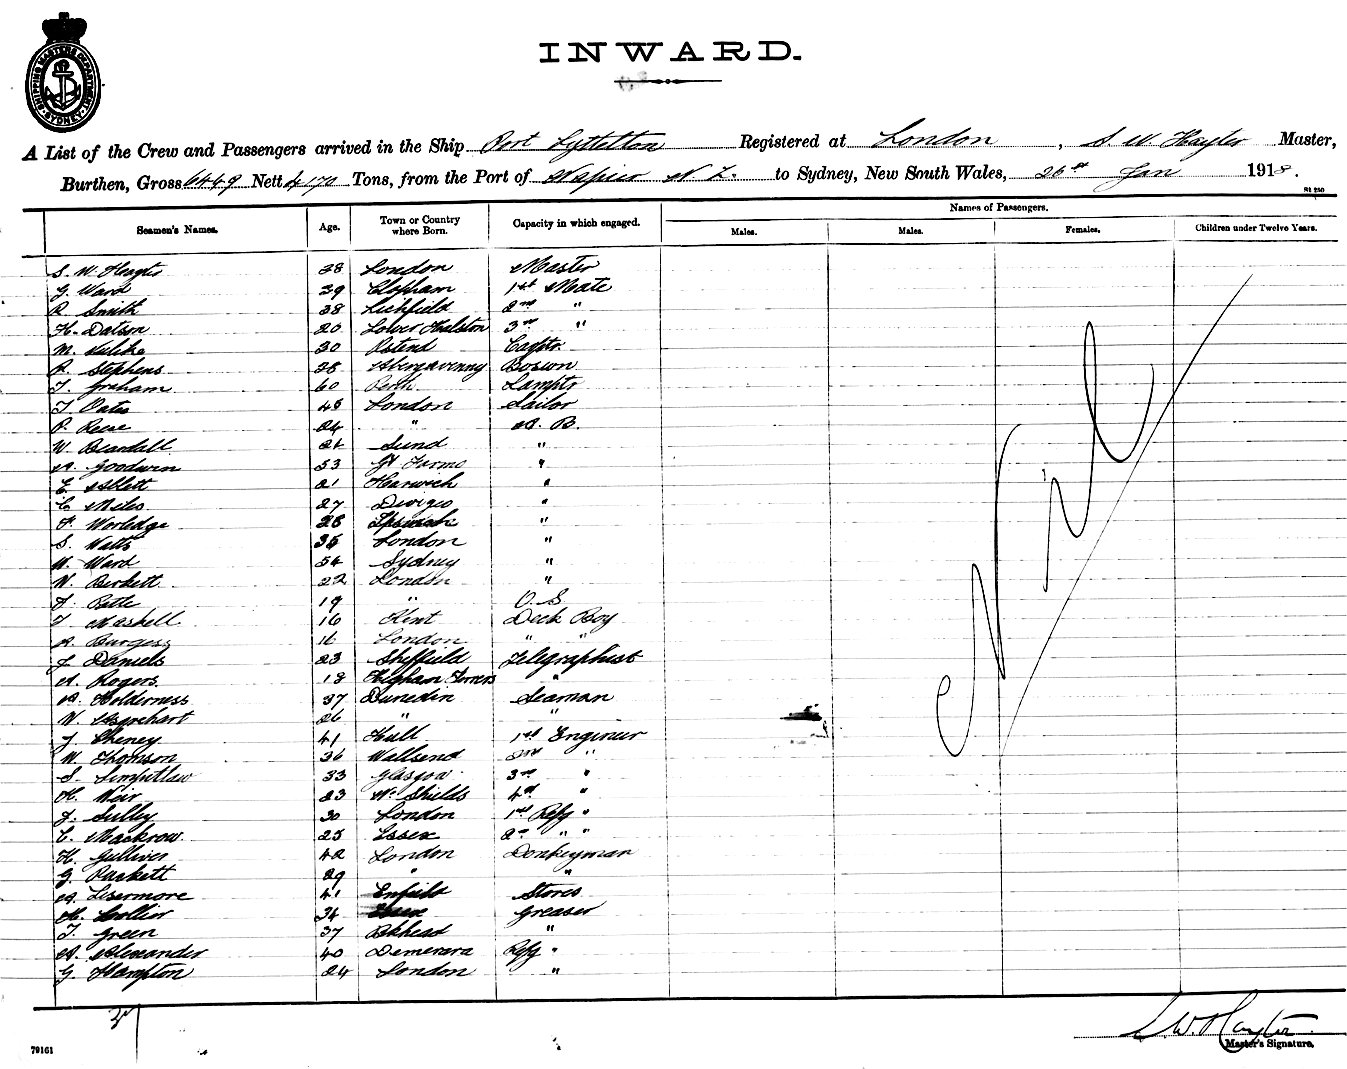 SHIPPING MASTERS DEPARTMENT
SYDNEY
INWARD.
A List of the Crew and Passengers arrived in the Ship Port Lyttelton Registered at London, S. W. Hayter Master,
Burthen, Gross 6449 Nett 4170 Tons, from the Port of Napier N Z. to Sydney, New South Wales, 26th Jan 1918.
Seamen's Names. Age. Town or Country where Born. Capacity in which engaged. Names of Passengers.
Males. Males. Females. Children under Twelve Years.
S. W. Hayter 38 London Master
G. Ward 39 Clapham 1st Mate
R. Smith 38 Lichfield 2nd "
H. Datson 20 Lower Halston 3rd "
M. 30 Ostend Carptr.
R. Stephens 38 Abergavenny Boswn
T. Graham 60 Perth Lamptr
T. Oates 48 London Sailor
P. Reese 24 " A. B.
W. Beardall 21 Sund "
A. Goodwin 53 Gt Yarmo "
E. Ablett 21 Harwich "
C. Miles 27 "
F. Worledge 28 Ipswich "
S. Watts 35 London "
W. Ward 54 Sydney "
W. Birkett 22 London "
19 " O. S
T. Maskell 16 Kent Deck Boy
A. Burgess 16 London " "
J. Daniels 23 Sheffield Telegraphist
A. Rogers 18 Higham Ferrers "
A. Holderness 37 Dunedin Seaman
W. 26 " "
J. Cheney 41 Hull 1st Engineer
W. Thomson 36 Wallsend 2nd "
S. 33 Glasgow 3rd "
H. Weir 23 No. Shields 4th "
J. Sulley 30 London 1st Refg "
C. Mackrow 25 Essex 2nd " "
H. Gulliver 42 London Donkeyman
G. Puckett 29 " "
A. Livermore 41 Enfield Stores
H. Collier 34 Essex Greaser
T. Green 37 Bkhead "
A. Alexander 40 Demerara Refg "
G. Hampton 24 London "
Nil
37
S. W. Hayter
Master's Signature.
79161